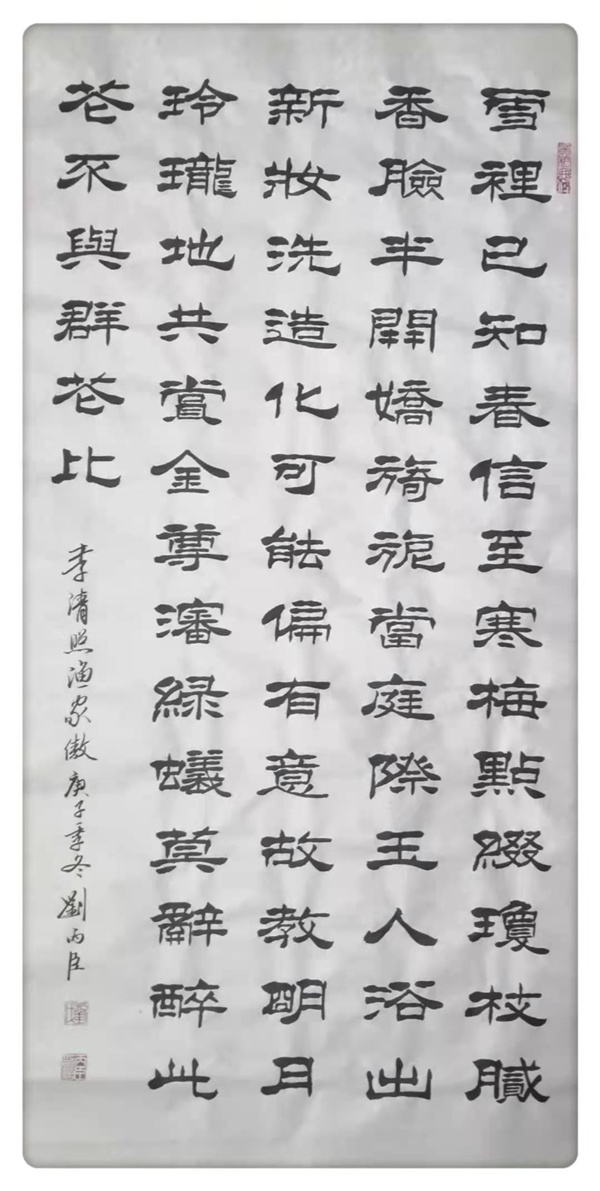 雪裡已知春信至寒梅點綴瓊枝膩
香臉半開嬌旖旎當庭際玉人浴出
新妝洗造化可能偏有意故教明月
玲瓏地共賞金尊瀋綠蟻莫辭醉此
花不與群花比
李清照渔家傲庚子季冬劉丙臣